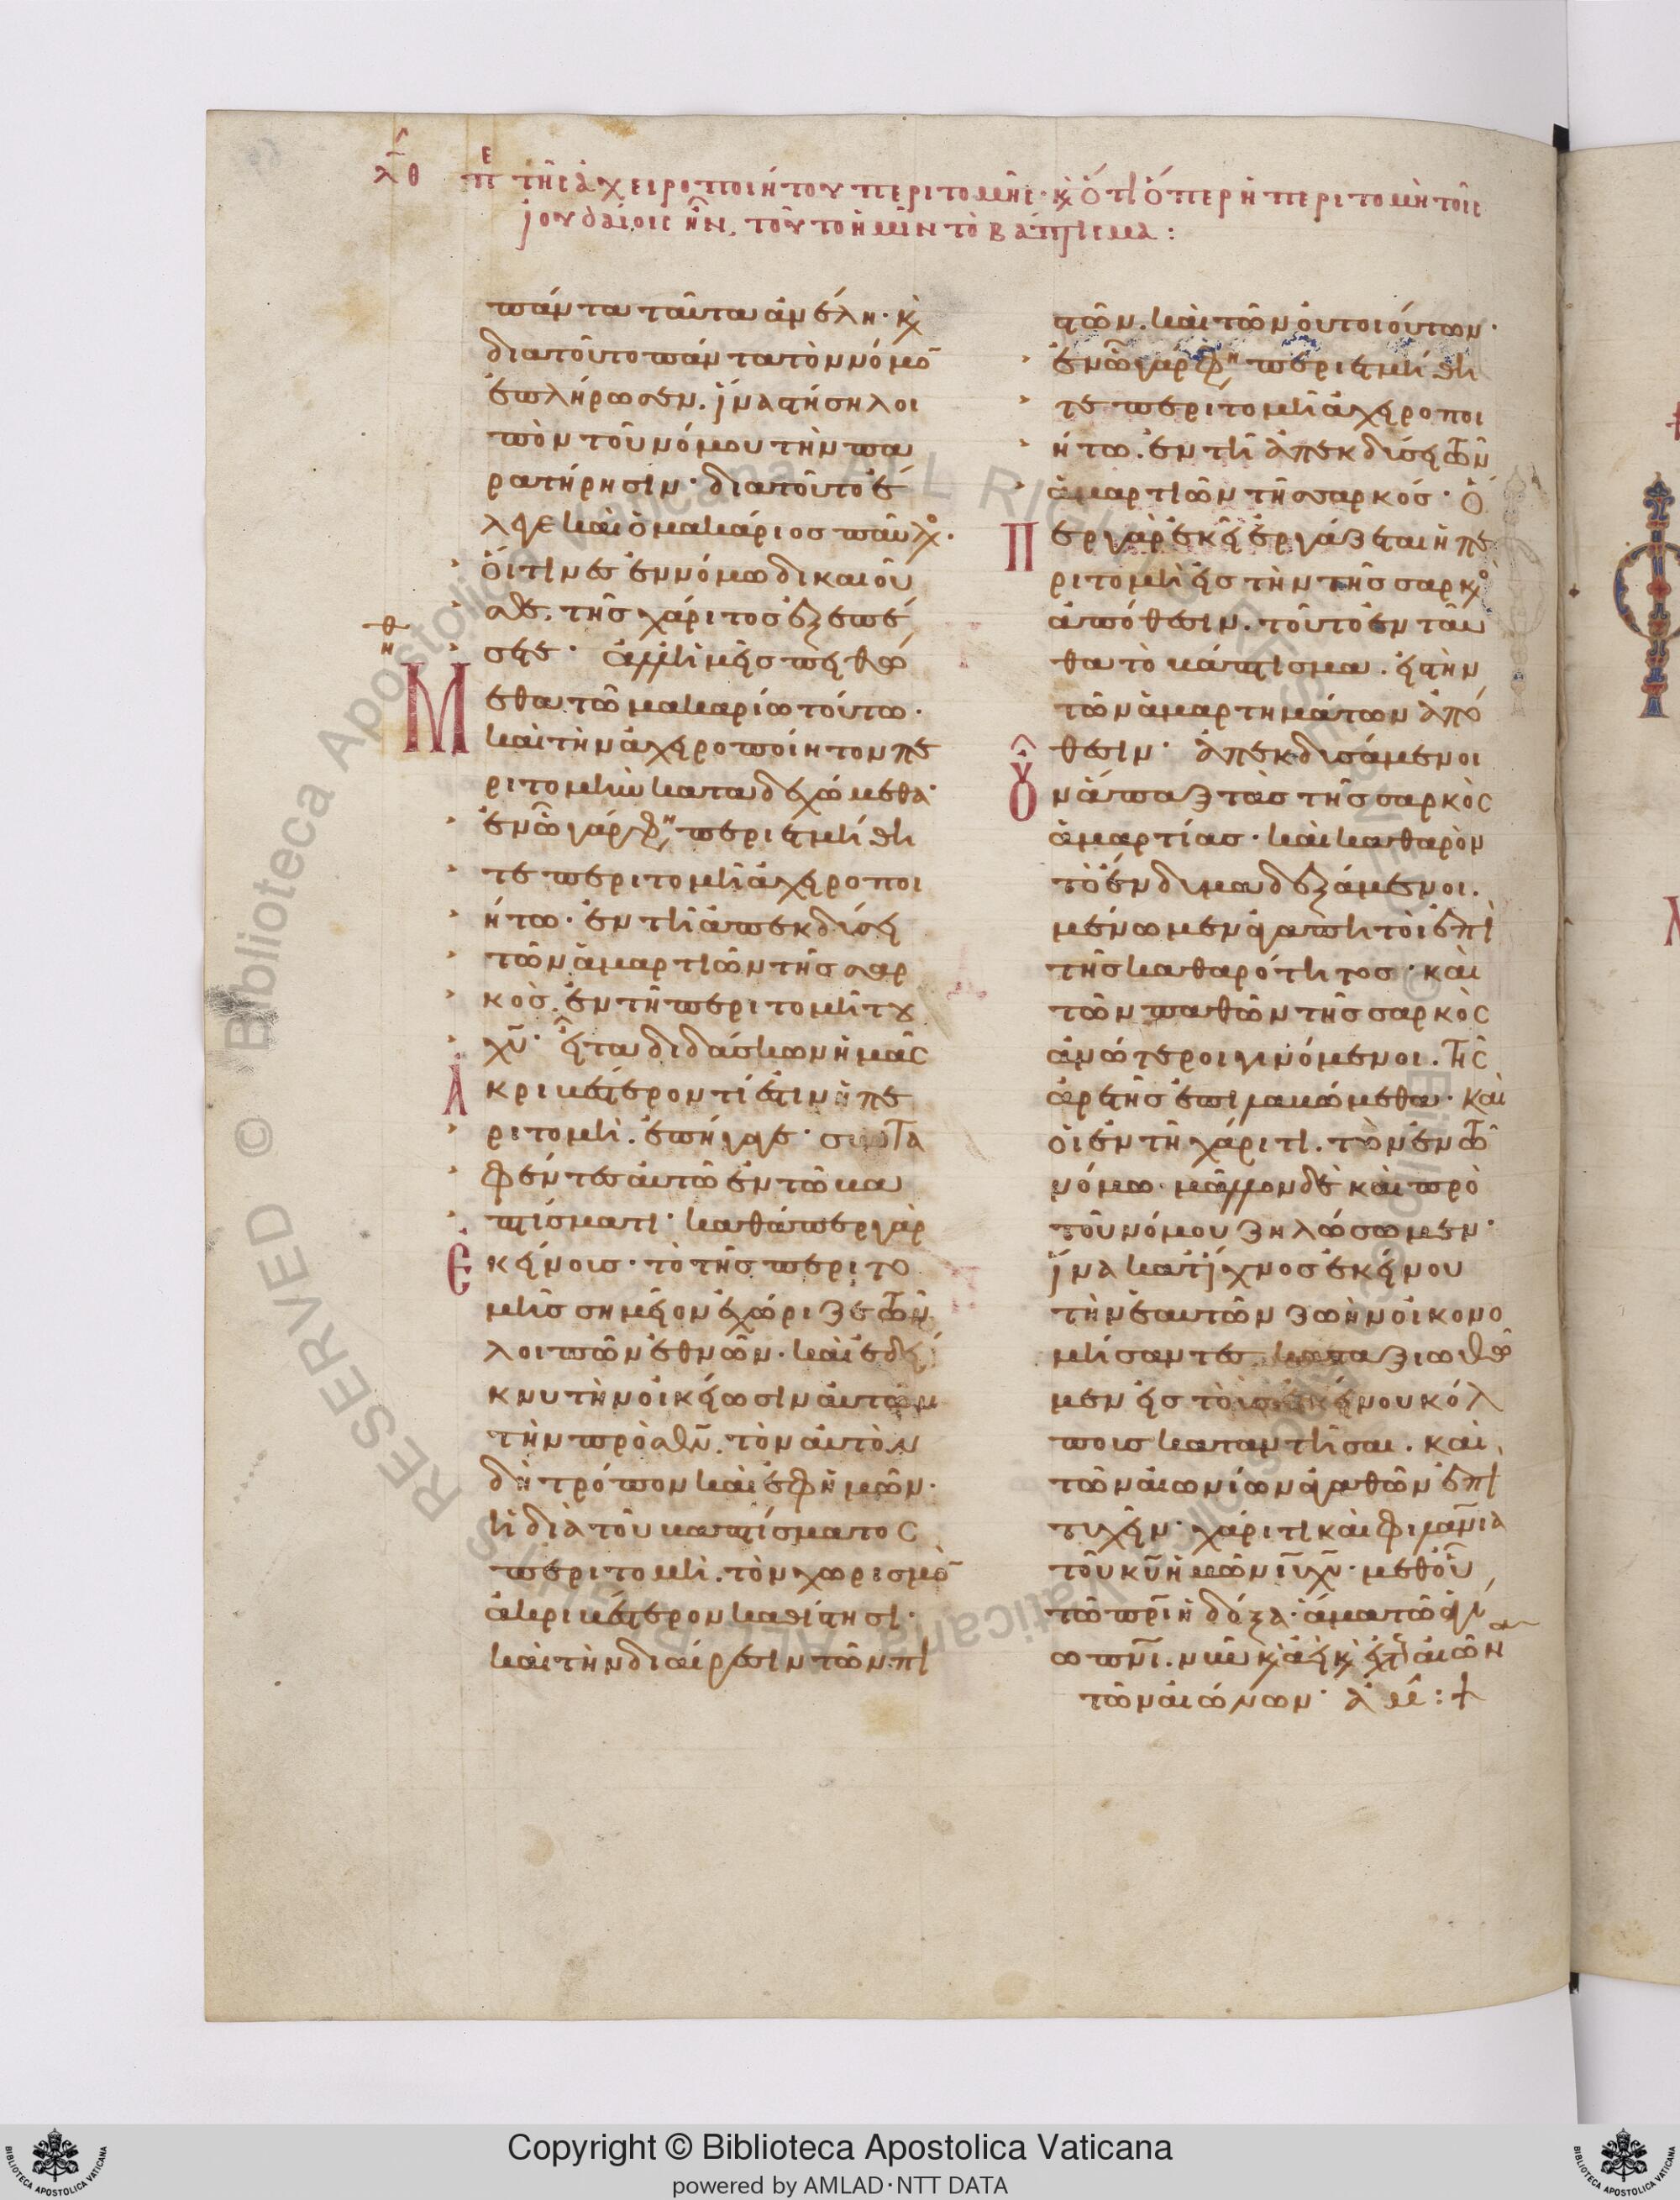 λθ πε τῆς ἀχειροποιήτου περιτομῆς· κ ὅτι ὅπερ ἡ περιτομὴ τοῖς
ἰουδαίοις ἦν, τοῦτο ἡμῖν τὸ βάπτισμα:
πάντα ταῦτα ἀνείλη· κ
διατοῦτο πάντα τὸν νόμο
ἐπλήρωσεν. ἵνα στήση λοι
πὸν τοῦ νόμου τὴν πα
ρατήρησιν· διατοῦτο ἔ
λεγε καὶ ὁ μακάριος παῦλο·
οἵτινες ἐν νόμω δικαιοῦ
σθε, τῆς χάριτος ἐξεπέ
σατε· ἀλλὴ
θη
Μ εις πειθώ
εσθα τῶ μακαρίω τούτω·
καὶ τὴν ἀχειροποίητον πε
ριτομὴν καταδεχώμεθα·
ἐν ὧ γάρ φη περιετμήθη
τε περιτομῆ ἀχειροποι
ήτω· ἐν τῆ ἀπεκδύσει
τῶν ἁμαρτιῶν τῆς σαρ
κὸς. ἐν τῆ περιτομῆ του
χυ· εἶτα διδάσκων ἡμᾶς
Ἀ κριβέστερον τί ἐστιν ἡ πε
ριτομή. ἐπήγαγε· συνTα
φέντες αὐτῶ ἐν τῶ βα
πτίσματι· καθάπερ γὰρ
Ἐ κείνοις· τὸ τῆς περιτο
μῆς σημεῖον ἐχώριζε τῶν
λοιπῶν ἐθνῶν· καὶ ἐδεί
κνυ τὴν οἰκείωσιν αὐτῶν
τὴν πρὸς θν. τὸν αὐτὸν
δὴ τρόπον καὶ ἐφ ἡμῶν·
ἡ διὰ τοῦ βαπτίσματος
περιτομὴ. τὸν χωρισμὸ
ἀκριβέστερον καθίστησι·
καὶ τὴν διαίρεσιν τῶν πι
στῶν. καὶ τῶν οὐ τοιούτων·
ἐν ὧ γάρ φη περιετμήθη
τε περιτομῆ ἀχειροποι
ήτω. ἐν τῆ ἀπεκδύσει τῶν
ἁμαρτιῶν τῆς σαρκός· ὅ
Π ερ γὰρ ἐκεῖ ἐργάζεται ἡ πε
ριτομὴ εἰς τὴν τῆς σαρκὸ
ἀπόθεσιν. τοῦτο ἐνταῦ
θα τὸ βάπτισμα. εἰς τὴν
τῶν ἁμαρτημάτων ἀπό
θεσιν· ἀπεκδυσάμενοι
Οὖ ν ἅπαξ τὰς τῆς σαρκὸς
ἁμαρτίας· καὶ καθαρὸν
τὸ ἔνδυμα δεξάμενοι.
μένωμεν ἀγαπητοὶ ἐπὶ
τῆς καθαρότητος· καὶ
τῶν παθῶν τῆς σαρκὸς
ἀνώτεροι γινόμενοι. τῆς
ἀρετῆς ἐπιλαβώμεθα· καὶ
οἱ ἐν τῆ χάριτι. τὸν ἐν τῶ
νόμω· μᾶλλον δὲ καὶ πρὸ
τοῦ νόμου ζηλώσωμεν·
ἵνα κατ ἴχνος ἐκείνου
τὴν ἑαυτῶν ζωὴν οἰκονο
μήσαντες καταξιωθῶ
μεν εἰς τοὺς ἐκείνου κόλ
ποις καταντῆσαι. καὶ
τῶν αἰωνίων ἀγαθῶν ἐπι
τυχεῖν· χάριτι καὶ φιλανια
τοῦ κυ ἡμῶν ιυ χυ· μεθ οὗ
τῶ πρι ἡ δόξα· ἅμα τῶ ἁγί
ω πνι. νῦν κ ἀεὶ κ εἰς τους αἰῶνα
τῶν αἰώνων· ἀμή: +
Copyright © Biblioteca Apostolica Vaticana
powered by AMLAD·NTT DATA